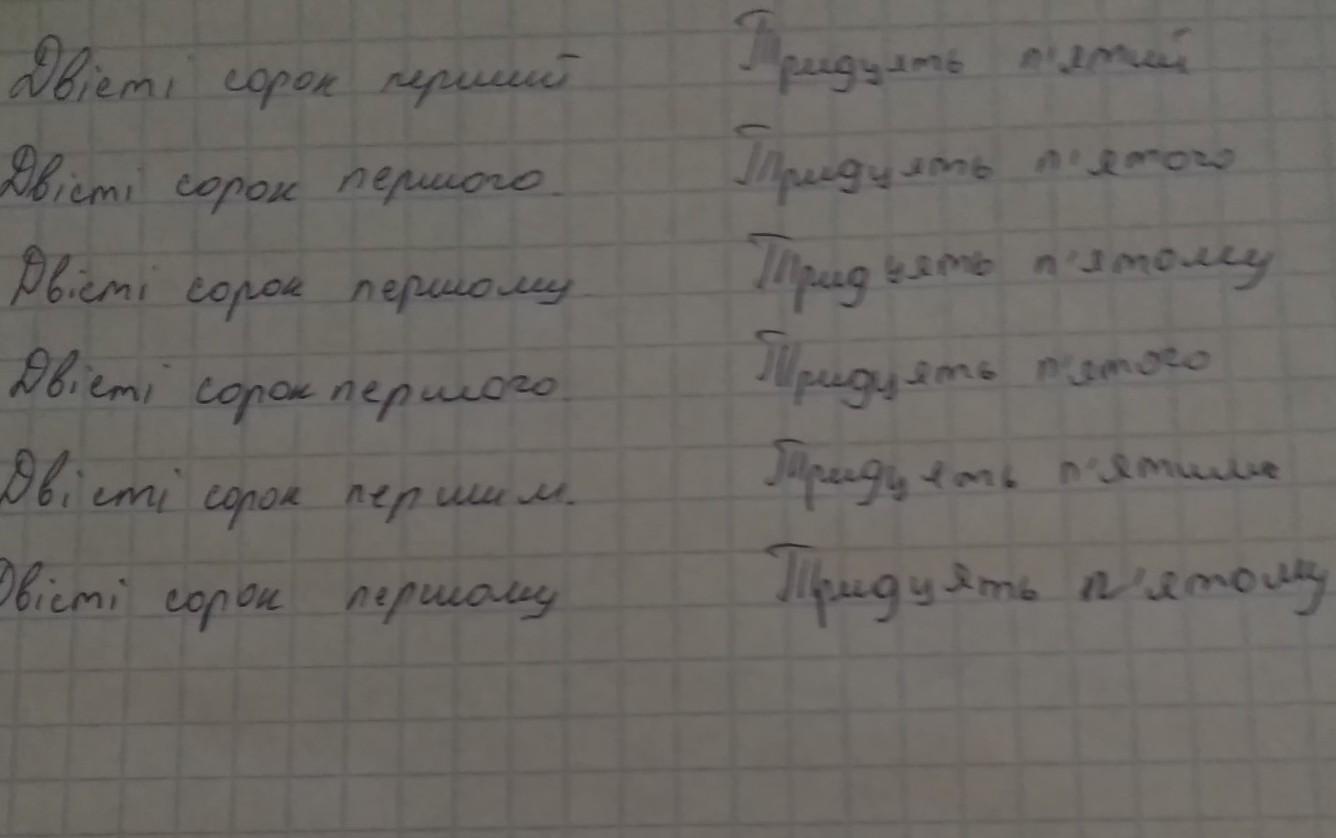 Двісті сорок перший
Двісті сорок першого
Двісті сорок першому
Двісті сорок першого
Двісті сорок першим.
Двісті сорок першому
Тридцять п'ятий
Тридцять п'ятого
Тридцять п'ятому
Тридцять п'ятого
Тридцять п'ятим
Тридцять п'ятому